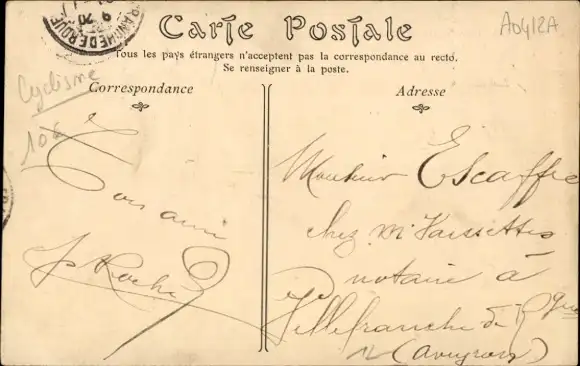 Carte Postale
A0412A
Tous les pays étrangers n'acceptent pas la correspondance au recto.
Se renseigner à la poste.
Cyclisme
Correspondance
Adresse
10€
Ton ami
Roche
Monsieur Escaffre
chez Mr Vaissettes
notaire à
Villefranche de Rgue
(Aveyron)